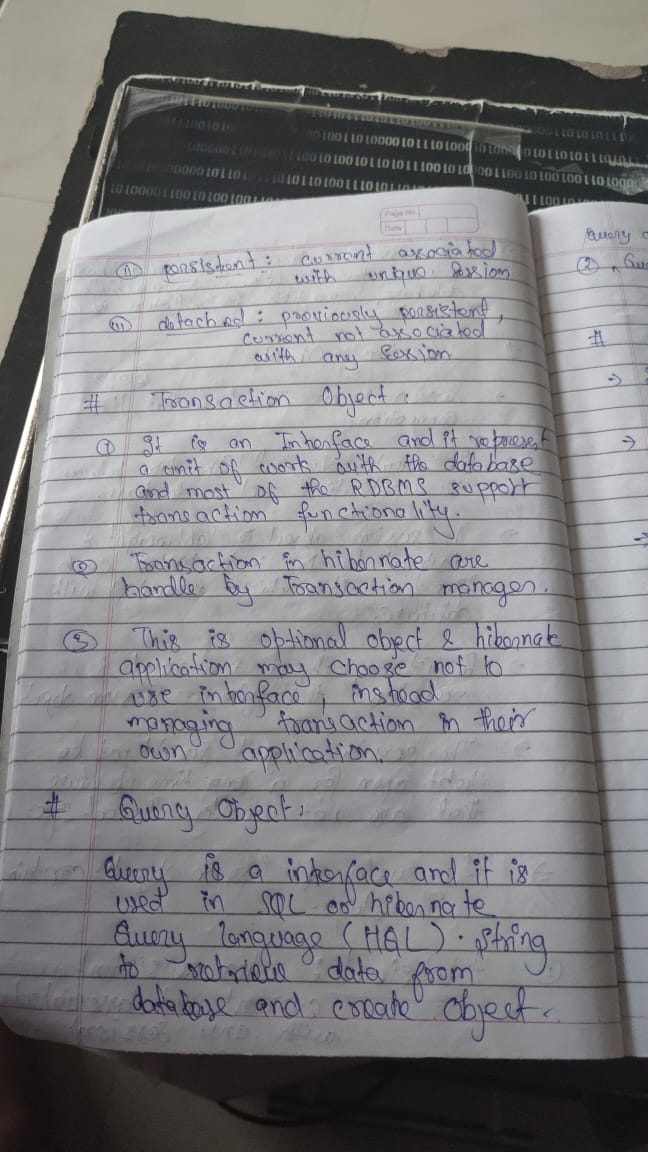 Page No.
Date
(ii) persistent : current associated
with unique session
(iii) detached : previously persistent,
current not associated
with any session
# Transaction Object :
① It is an Interface and it represent
a unit of works with the database
and most of the RDBMS support
transaction functionality.
② Transaction in hibernate are
handle by Transaction manager.
③ This is optional object & hibernate
application may choose not to
use interface, instead
managing transaction in their
own application.
# Query Object :
Query is a interface and it is
used in SQL or hibernate
Query language (HQL). string
to retrieve data from
database and create object.
Query
②
#